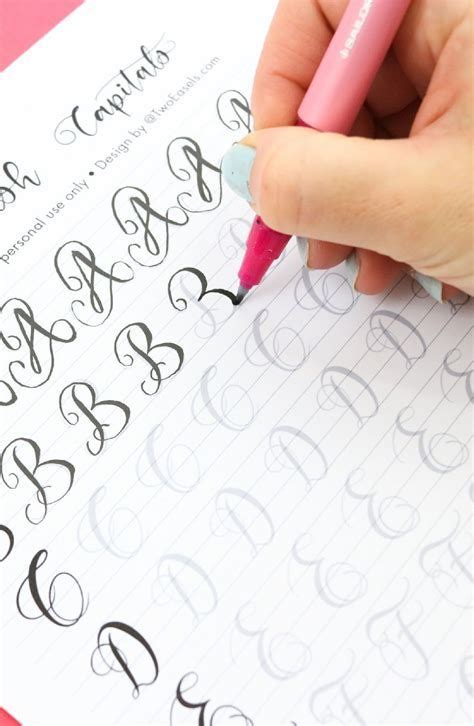 Capitals
personal use only • Design by @TwoEasels.com
A A A A A
B B B B
C C C C C C
D D D D D D
E E E E E
F F F
SAILOR